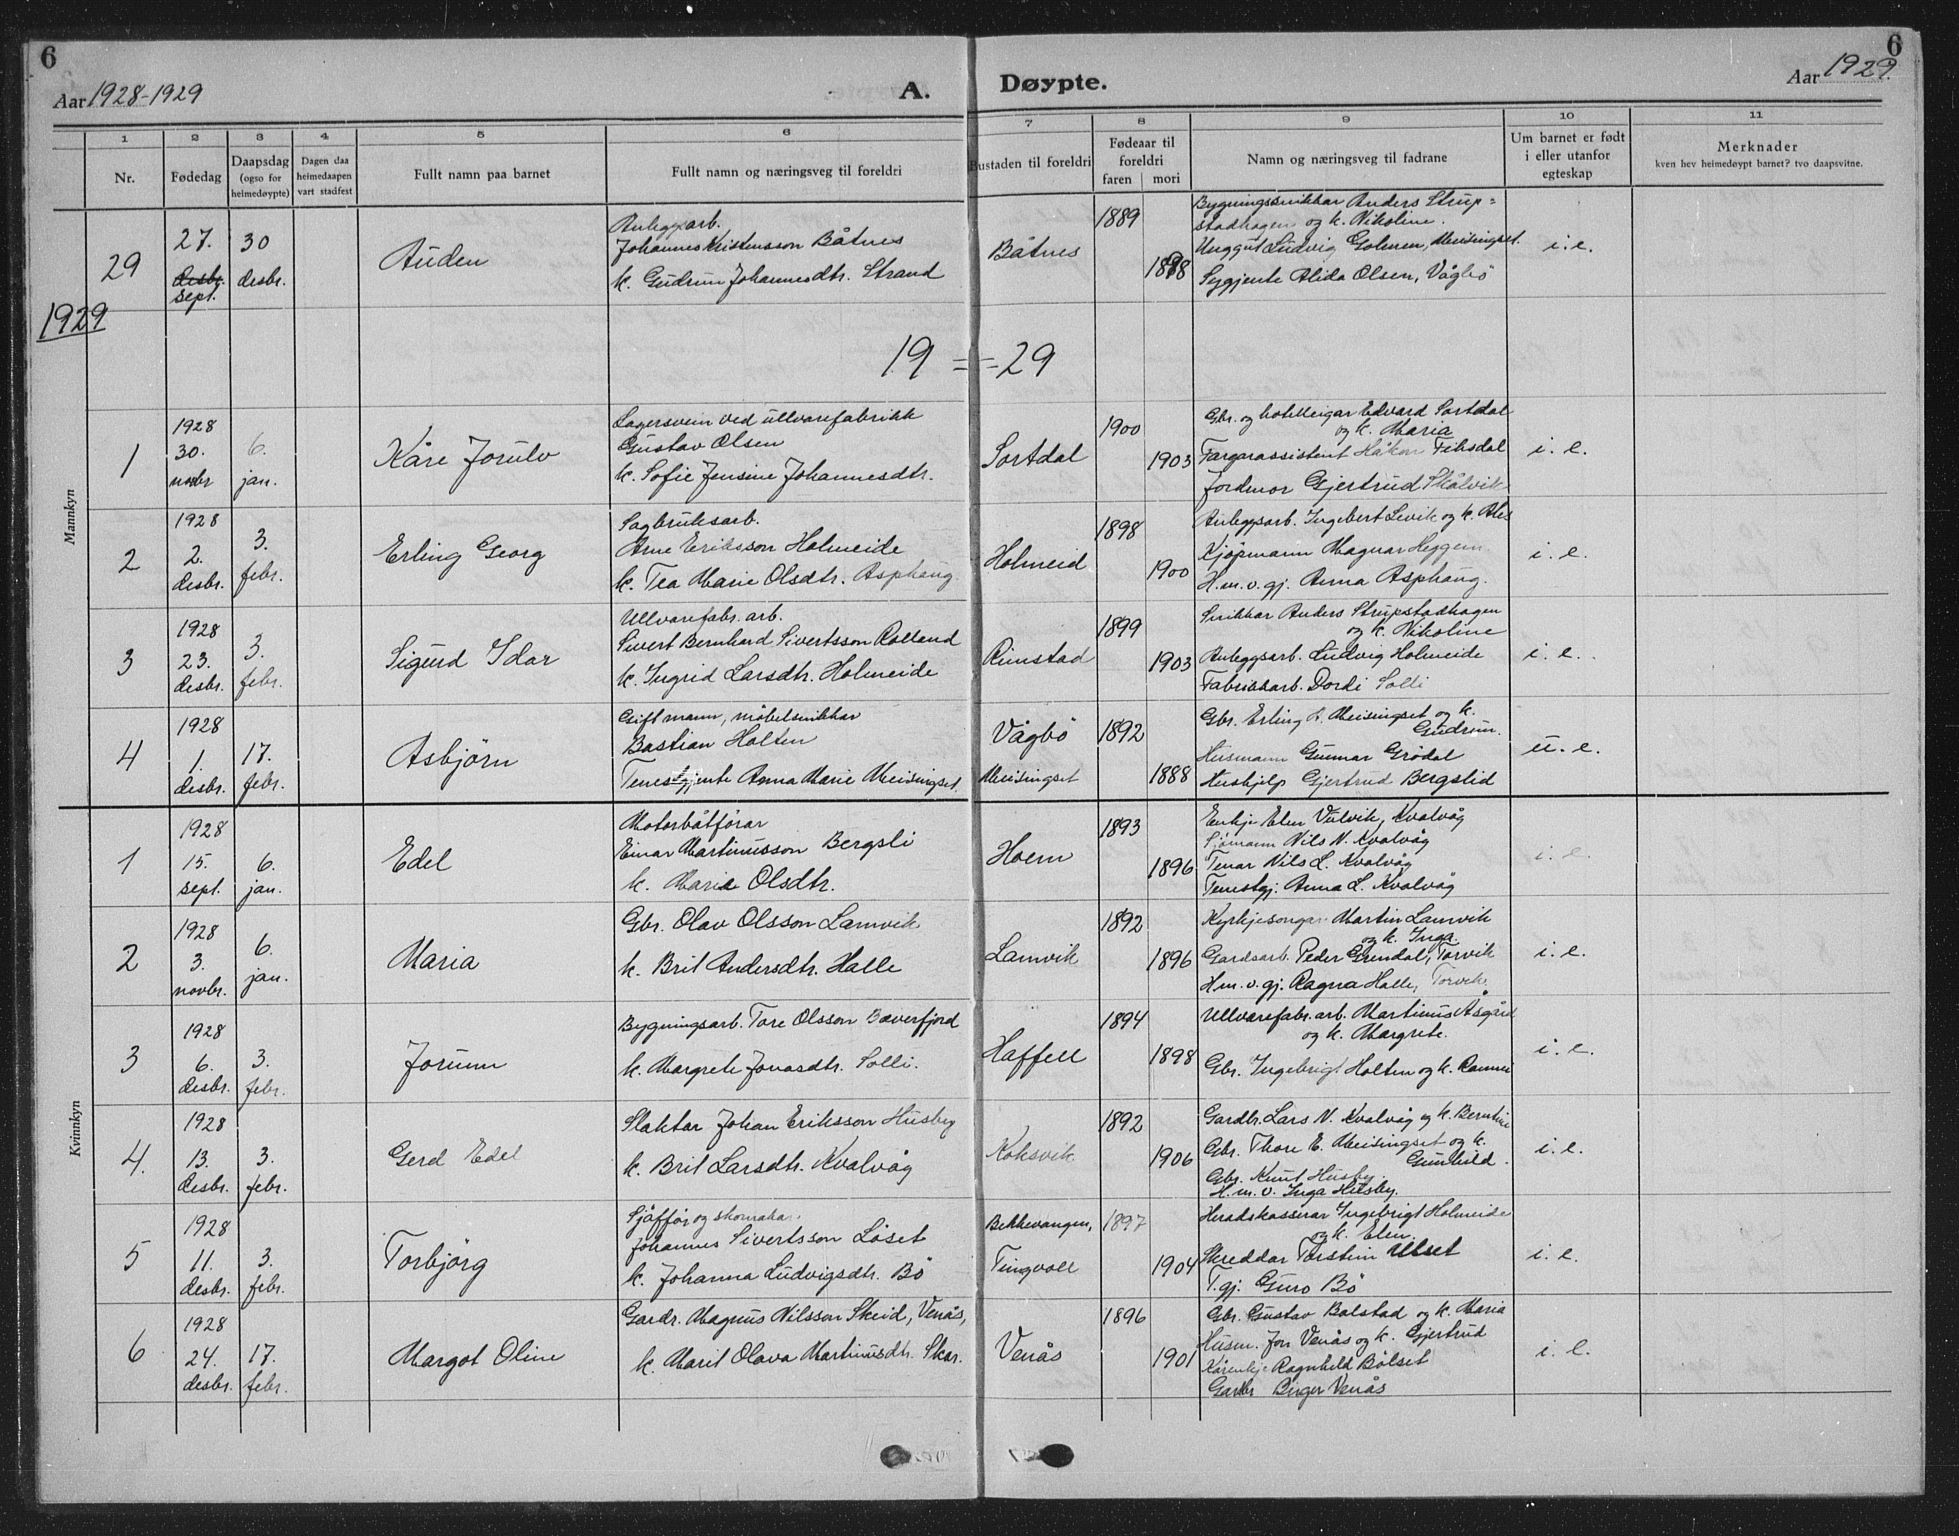 6
6
Aar 1928-1929
A. Døypte.
Aar 1929.
1 2 3 4 5 6 7 8 9 10 11
Nr.
Fødedag
Daapsdag
(ogso for
heimedøypte)
Dagen daa
heimedaapen
vart stadfest
Fullt namn paa barnet
Fullt namn og næringsveg til foreldri
Bustaden til foreldri
Fødeaar til
foreldri
faren mori
Namn og næringsveg til fadrane
Um barnet er født
i eller utanfor
egteskap
Merknader
kven hev heimedøypt barnet? tvo daapsvitne.
29
27.
desbr.
sept.
30
desbr.
Auden
Anleggsarb.
Johannes Kristensson Båtnes
k. Gudrun Johannesdtr. Strand
Båtnes
1889
1898
Bygningssnikkar Anders Strup=
stadhagen og k. Nikoline.
Unggut Ludvig Golmen, Meisingset.
Sygjente Alida Olsen, Vågbö
i. e.
1929
19 = = 29
Mannkyn
1
1928
30.
novbr
6.
jan.
Kåre Jorulv
Lagersvein ved ullvarefabrikk
Gustav Olsen
k. Sofie Jensine Johannesdtr.
Sortdal
1900
1903
Gbr. og hotelleigar Edvard Sortdal
og k. Maria
Fargarassistent Håkon Feksdal
Jordmor Gjertrud Skålvik
i. e.
2
1928
2.
desbr.
3.
febr.
Erling Georg
Sagbruksarb.
Arne Eriksson Holmeide
k. Tea Marie Olsdtr. Asphaug
Holmeid
1898
1900
Anleggsarb. Ingebert Levik og k.
Kjöpmann Magnar Heggem
H.m.v.gj. Anna Asphaug.
i. e.
3
1928
23.
desbr.
3.
febr.
Sigurd Idar
Ullvarefabr. arb.
Sivert Bernhard Sivertsson Rolland
k. Ingrid Larsdtr. Holmeide
Rimstad
1899
1903
Snikkar Anders Strupstadhagen
og k. Nikoline
Anleggsarb. Ludvig Holmeide
Fabrikkarb. Dordi Solli
i. e.
4
1928
1.
desbr.
17.
febr.
Asbjörn
Gift mann, möbelsnikkar
Bastian Holten
Tenestgjente Anna Marie Meisingset.
Vågbö
Meisingset
1892
1888
Gbr. Erling L. Meisingset og k.
Gudrun.
Husmann Gunnar Grödal
Hushjelp Gjertrud Bergslid
u. e.
Kvinnkyn
1
1928
15.
sept.
6.
jan.
Edel
Motorbåtförar
Einar Martinusson Bergsli
k. Maria Olsdtr.
Hoem
1893
1896
Enkje Elen Vulvik, Kvalvåg
Sjömann Nils N. Kvalvåg
Tenar Nils L. Kvalvåg
Tenestgj. Anna L. Kvalvåg
i. e.
2
1928
3.
novbr.
6.
jan.
Maria
Gbr. Olav Olsson Lamvik
k. Brit Andersdtr. Halle
Lamvik
1892
1896
Kyrkjesongar Martin Lamvik
og k. Inga
Gardsarb. Peder Grimdal, Torvik
H.m.v.gj. Ragna Halle, Torvik.
i. e.
3
1928
6.
desbr.
3.
febr.
Jorunn
Bygningsarb. Tore Olsson Bæverfjord
k. Margrete Jonasdtr. Solli.
Haffell
1894
1898
Ullvarefabr. arb. Martinus Åsgård
og k. Margrete.
Gbr. Ingebrigt Holten og k.
i. e.
4.
1928
13.
desbr.
3.
febr.
Gerd Edel
Slaktar Johan Eriksson Husby
k. Brit Larsdtr. Kvalvåg
Koksvik
1892
1906
Gardbr. Lars N. Kvalvåg og k. Berntine
Gbr. Thore E. Meisingset og k.
Gunhild.
Gbr. Knut Husby.
H.m.v. Inga Husby.
i. e.
5
1928
11.
desbr.
3.
febr.
Torbjörg
Sjåför og skomakar
Johannes Sivertsson Löset
k. Johanna Ludvigsdtr. Bö
Bekkevangen,
Tingvoll
1897
1904
Heradskasserar Ingebrigt Holmeide
og k. Elen.
Skreddar Torstein Ulset
T.gj. Guro Bö
i. e.
6
1928
24.
desbr.
17.
febr.
Margot Oline
Gardr. Magnus Nilsson Skeid, Venås,
k. Marit Olava Martinusdtr. Skar.
Venås
1896
1901
Gbr. Gustav Bolstad og k. Maria
Husm. Jon Venås og k. Gjertrud
Kårenkje Ragnhild Bölset
Gardbr Birger Venås
i. e.